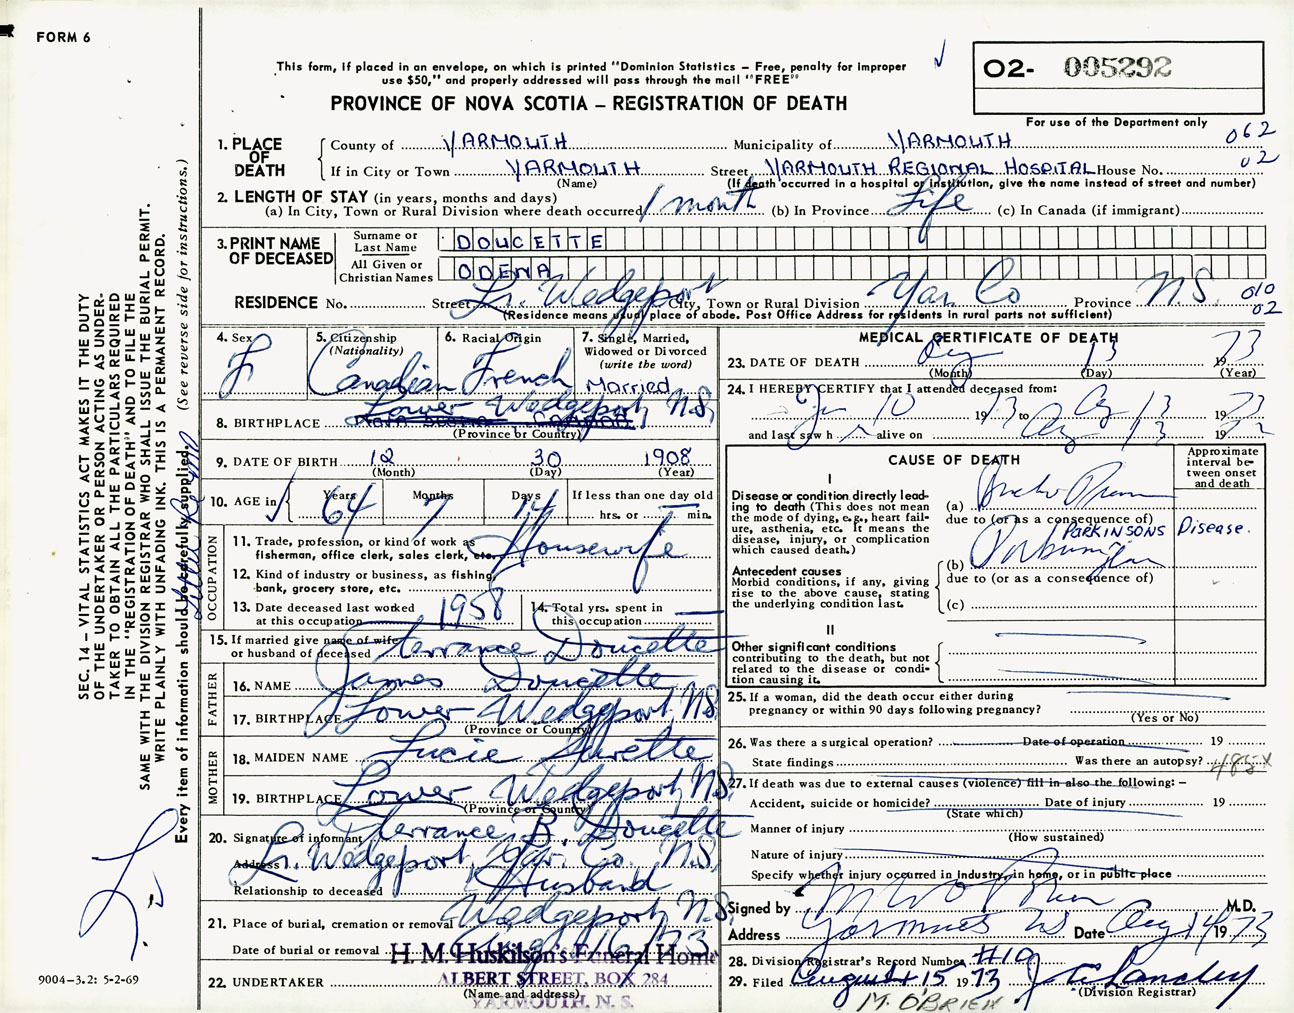 FORM 6
This form, if placed in an envelope, on which is printed "Dominion Statistics – Free, penalty for improper
use $50," and properly addressed will pass through the mail "FREE"
PROVINCE OF NOVA SCOTIA – REGISTRATION OF DEATH
O2- 005292
For use of the Department only
062
02
1. PLACE OF DEATH
County of YARMOUTH Municipality of YARMOUTH
If in City or Town YARMOUTH Street YARMOUTH REGIONAL HOSPITAL House No.
(Name) (If death occurred in a hospital or institution, give the name instead of street and number)
2. LENGTH OF STAY (in years, months and days)
(a) In City, Town or Rural Division where death occurred 1 month (b) In Province Life (c) In Canada (if immigrant)
3. PRINT NAME OF DECEASED
Surname or Last Name DOUCETTE
All Given or Christian Names ODENA
RESIDENCE No. Street Lr. Wedgeport City, Town or Rural Division Yar. Co Province N.S. 010
02
(Residence means usual place of abode. Post Office Address for residents in rural parts not sufficient)
4. Sex F
5. Citizenship (Nationality) Canadian
6. Racial Origin French
7. Single, Married, Widowed or Divorced (write the word) Married
8. BIRTHPLACE Lower Wedgeport, N.S.
(Province or Country)
9. DATE OF BIRTH 12 30 1908
(Month) (Day) (Year)
10. AGE in Years 64 Months 7 Days 14 If less than one day old
hrs. or min.
OCCUPATION
11. Trade, profession, or kind of work as fisherman, office clerk, sales clerk, etc. Housewife
12. Kind of industry or business, as fishing, bank, grocery store, etc.
13. Date deceased last worked at this occupation 1958
14. Total yrs. spent in this occupation
15. If married give name of wife or husband of deceased Terrance Doucette
FATHER
16. NAME James Doucette
17. BIRTHPLACE Lower Wedgeport, N.S.
(Province or Country)
MOTHER
18. MAIDEN NAME Lucie Surette
19. BIRTHPLACE Lower Wedgeport, N.S.
(Province or Country)
20. Signature of informant Terrance B. Doucette
Address Lr. Wedgeport, Yar. Co. N.S.
Relationship to deceased Husband
21. Place of burial, cremation or removal Wedgeport, N.S.
Date of burial or removal Aug. 16, 73
22. UNDERTAKER
H. M. Huskilson's Funeral Home
ALBERT STREET, BOX 284
(Name and address)
YARMOUTH, N. S.
MEDICAL CERTIFICATE OF DEATH
23. DATE OF DEATH Aug 13 1973
(Month) (Day) (Year)
24. I HEREBY CERTIFY that I attended deceased from:
10 1973 to Aug 13 1973
and last saw h er alive on Aug 13 19
CAUSE OF DEATH
Approximate interval between onset and death
I
Disease or condition directly leading to death (This does not mean the mode of dying, e.g., heart failure, asthenia, etc. It means the disease, injury, or complication which caused death.)
(a)
due to (or as a consequence of)
PARKINSONS Disease.
Antecedent causes
Morbid conditions, if any, giving rise to the above cause, stating the underlying condition last.
(b)
due to (or as a consequence of)
(c)
II
Other significant conditions contributing to the death, but not related to the disease or condition causing it.
25. If a woman, did the death occur either during
pregnancy or within 90 days following pregnancy?
(Yes or No)
26. Was there a surgical operation? Date of operation 19
State findings Was there an autopsy? 485X
27. If death was due to external causes (violence) fill in also the following: –
Accident, suicide or homicide? Date of injury 19
(State which)
Manner of injury
(How sustained)
Nature of injury
Specify whether injury occurred in industry, in home, or in public place
Signed by M.D.
Address Yarmouth NS Date Aug 14 1973
28. Division Registrar's Record Number #19
29. Filed August 15 1973
(Division Registrar)
M. O'BRIEN
SEC. 14 – VITAL STATISTICS ACT MAKES IT THE DUTY
OF THE UNDERTAKER OR PERSON ACTING AS UNDER-
TAKER TO OBTAIN ALL THE PARTICULARS REQUIRED
IN THE "REGISTRATION OF DEATH" AND TO FILE THE
SAME WITH THE DIVISION REGISTRAR WHO SHALL ISSUE THE BURIAL PERMIT.
WRITE PLAINLY WITH UNFADING INK. THIS IS A PERMANENT RECORD.
Every item of information should be carefully supplied. (See reverse side for instructions.)
9004–3.2: 5-2-69